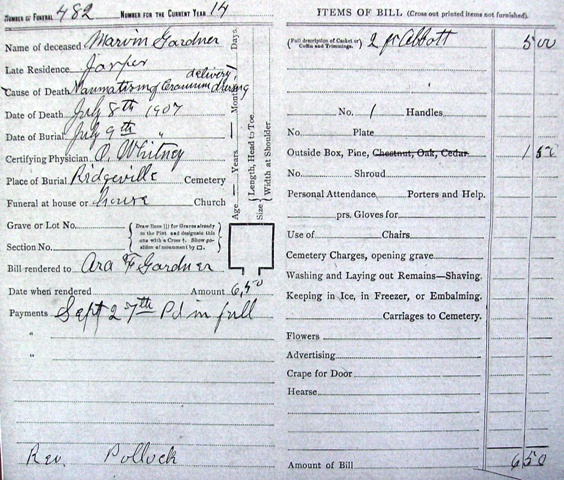 NUMBER OF FUNERAL 482 NUMBER FOR THE CURRENT YEAR 14
Name of deceased Marvin Gardner
Late Residence Jasper
delivery
Cause of Death Traumatism of Cranium during
Date of Death July 8th 1907
Date of Burial July 9th "
Certifying Physician O. Whitney
Place of Burial Ridgeville Cemetery
Funeral at house or House Church
Grave or Lot No.
Section No.
{Draw lines [|] for Graves already in the Plot and designate this one with a Cross †. Show position of monument by □.}
Bill rendered to Ara F Gardner
Date when rendered Amount 6,50
Payments Sept 27th Pd in full
"
"
Rev. Pollock
Age — Years — Months — Days.
Size { Length, Head to Toe. Width at Shoulder.
ITEMS OF BILL (Cross out printed items not furnished).
(Full description of Casket or Coffin and Trimmings.) 2 ft Abbott 5 00
No. 1 Handles
No. Plate
Outside Box, Pine, Chestnut, Oak, Cedar 1 50
No. Shroud
Personal Attendance, Porters and Help.
prs. Gloves for
Use of Chairs.
Cemetery Charges, opening grave
Washing and Laying out Remains—Shaving.
Keeping in Ice, in Freezer, or Embalming.
Carriages to Cemetery.
Flowers
Advertising
Crape for Door
Hearse
Amount of Bill 6 50